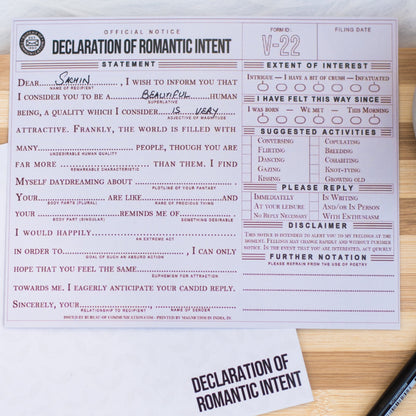 OFFICIAL NOTICE
DECLARATION OF ROMANTIC INTENT
FORM ID:
V-22
FILING DATE
STATEMENT
DEAR Sachin, I WISH TO INFORM YOU THAT
NAME OF RECIPIENT
I CONSIDER YOU TO BE A BEAUTIFUL HUMAN
SUPERLATIVE
BEING, A QUALITY WHICH I CONSIDER IS VERY
ADJECTIVE OF MAGNITUDE
ATTRACTIVE. FRANKLY, THE WORLD IS FILLED WITH
MANY PEOPLE, THOUGH YOU ARE
UNDESIRABLE HUMAN QUALITY
FAR MORE THAN THEM. I FIND
REMARKABLE CHARACTERISTIC
MYSELF DAYDREAMING ABOUT .
PLOTLINE OF YOUR FANTASY
YOUR ARE LIKE AND
BODY PARTS (PLURAL) NAME OF PRECIOUS THING
YOUR REMINDS ME OF .
BODY PART (SINGULAR) SOMETHING DESIRABLE
I WOULD HAPPILY
AN EXTREME ACT
IN ORDER TO , I CAN ONLY
GOAL OF SUCH AN ABSURD ACTION
HOPE THAT YOU FEEL THE SAME
EUPHEMISM FOR ATTRACTION
TOWARDS ME. I EAGERLY ANTICIPATE YOUR CANDID REPLY.
SINCERELY, YOUR ,
RELATIONSHIP TO RECIPIENT NAME OF SENDER
ISSUED BY BUREAU OF COMMUNICATION.COM - PRINTED BY MAGNICTION IN INDIA, IN
EXTENT OF INTEREST
INTRIGUE — I HAVE A BIT OF CRUSH — INFATUATED
I HAVE FELT THIS WAY SINCE
I WAS BORN — WE MET — THIS MORNING
SUGGESTED ACTIVITIES
CONVERSING COPULATING
FLIRTING BREEDING
DANCING COHABITING
GAZING KNOT-TYING
KISSING GROWING OLD
PLEASE REPLY
IMMEDIATELY IN WRITING
AT YOUR LEISURE AND/OR IN PERSON
NO REPLY NECESSARY WITH ENTHUSIASM
DISCLAIMER
THIS NOTICE IS INTENDED TO ALERT YOU TO MY FEELINGS AT THE
MOMENT. FEELINGS MAY CHANGE RAPIDLY AND WITHOUT FURTHER
NOTICE. IN THE EVENT THAT YOU ARE INTERESTED, ACT QUICKLY
FURTHER NOTATION
PLEASE REFRAIN FROM THE USE OF POETRY
DECLARATION OF
ROMANTIC INTENT